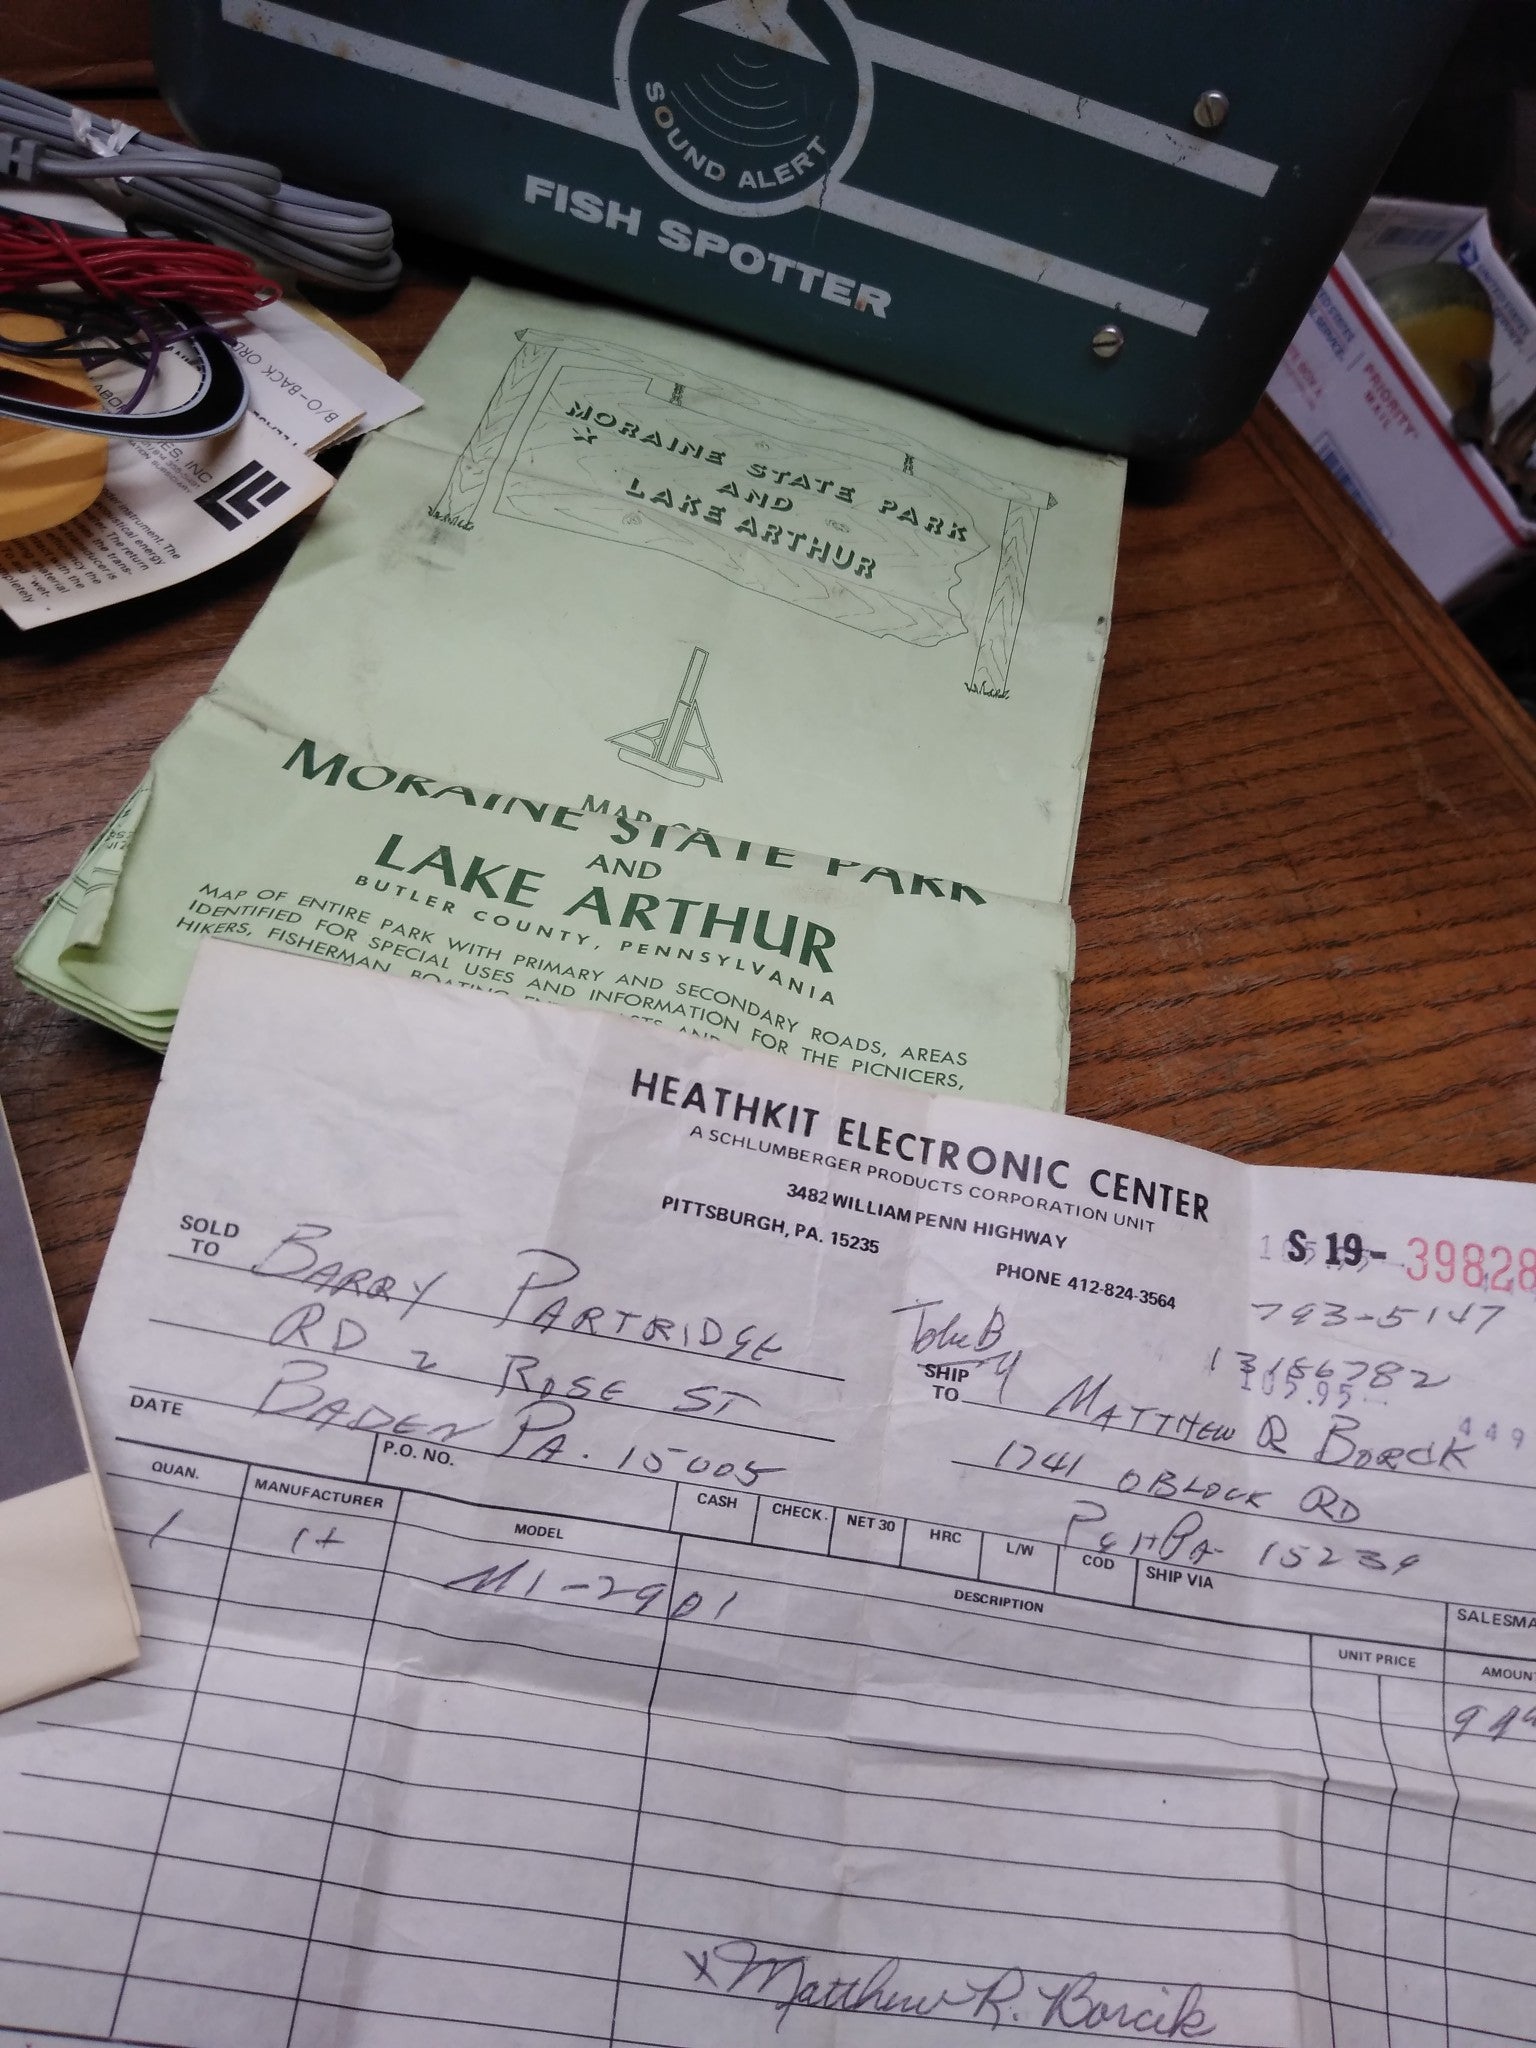 SOUND ALERT
FISH SPOTTER
B/O-BACK ORD
INC
instrument. The
energy
The return
the trans-
ducer is
PRIORITY
MAIL
MORAINE STATE PARK
AND
LAKE ARTHUR
MAP OF
MORAINE STATE PARK
AND
LAKE ARTHUR
BUTLER COUNTY, PENNSYLVANIA
MAP OF ENTIRE PARK WITH PRIMARY AND SECONDARY ROADS, AREAS
IDENTIFIED FOR SPECIAL USES AND INFORMATION FOR THE PICNICERS,
HIKERS, FISHERMAN, BOATING AND
HEATHKIT ELECTRONIC CENTER
A SCHLUMBERGER PRODUCTS CORPORATION UNIT
3482 WILLIAM PENN HIGHWAY
PITTSBURGH, PA. 15235
PHONE 412-824-3564
S 19- 39828
793-5147
13186782
105.95
449
SOLD TO BARRY PARTRIDGE
RD 2 ROSE ST
BADEN PA. 15005
SHIP TO MATTHEW R BORCIK
1741 OBLOCK RD
PGH PA 15239
DATE
P.O. NO.
CASH CHECK. NET 30 HRC L/W COD SHIP VIA
SALESMA
QUAN. MANUFACTURER MODEL DESCRIPTION UNIT PRICE AMOUN
1 1+ M1-2901
Matthew R. Borcik